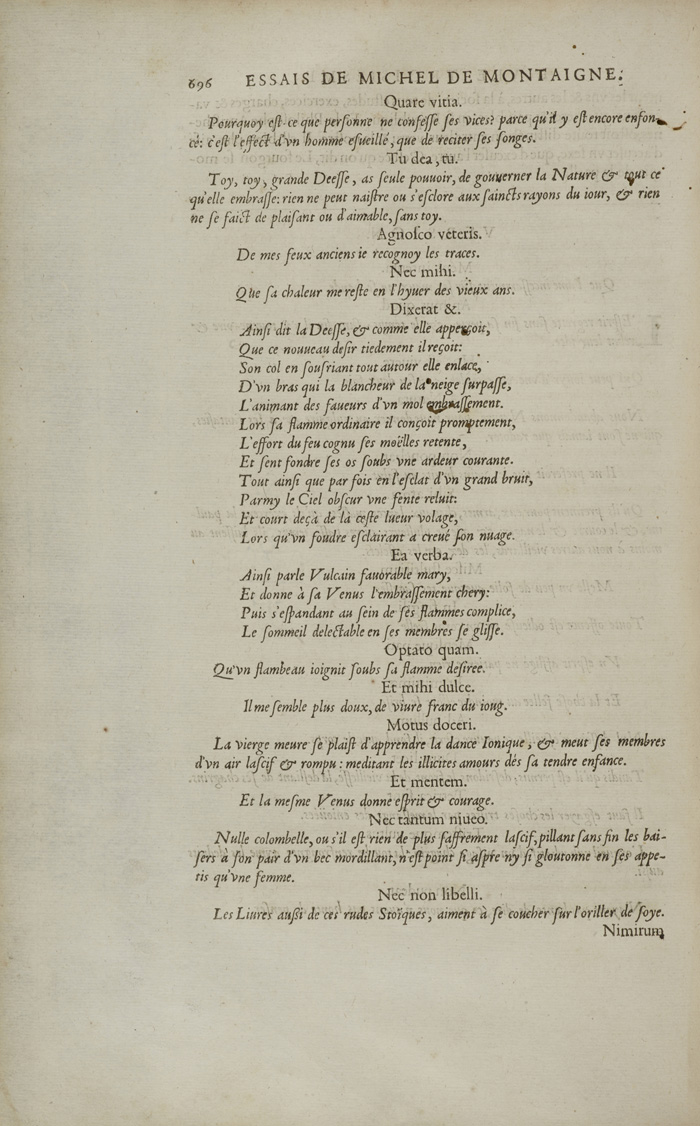 696 ESSAIS DE MICHEL DE MONTAIGNE.
Quare vitia.
Pourquoy eſt-ce que perſonne ne confeſſe ſes vices? parce qu'il y eſt encore enfon-
cé: c'eſt l'effect d'vn homme eſueillé, que de reciter ſes ſonges.
Tu dea, tu.
Toy, toy, grande Deeſſe, as ſeule pouuoir, de gouuerner la Nature & tout ce
qu'elle embraſſe: rien ne peut naiſtre ou s'eſclore aux ſaincts rayons du iour, & rien
ne ſe faict de plaiſant ou d'aimable, ſans toy.
Agnoſco veteris.
De mes feux anciens ie recognoy les traces.
Nec mihi.
Que ſa chaleur me reſte en l'hyuer des vieux ans.
Dixerat &.
Ainſi dit la Deeſſe, & comme elle apperçoit,
Que ce nouueau deſir tiedement il reçoit:
Son col en ſouſriant tout autour elle enlace,
D'vn bras qui la blancheur de la neige ſurpaſſe,
L'animant des faueurs d'vn mol embraſſement.
Lors ſa flamme ordinaire il conçoit promptement,
L'effort du feu cognu ſes moëlles retente,
Et ſent fondre ſes os ſoubs vne ardeur courante.
Tout ainſi que par fois en l'eſclat d'vn grand bruit,
Parmy le Ciel obſcur vne fente reluit:
Et court deçà de là ceſte lueur volage,
Lors qu'vn foudre eſclairant a creué ſon nuage.
Ea verba.
Ainſi parle Vulcain fauorable mary,
Et donne à ſa Venus l'embraſſement chery:
Puis s'eſpandant au ſein de ſes flammes complice,
Le ſommeil delectable en ſes membres ſe gliſſe.
Optato quam.
Qu'vn flambeau ioignit ſoubs ſa flamme deſiree.
Et mihi dulce.
Il me ſemble plus doux, de viure franc du ioug.
Motus doceri.
La vierge meure ſe plaiſt d'apprendre la dance Ionique, & meut ſes membres
d'vn air laſcif & rompu: meditant les illicites amours dés ſa tendre enfance.
Et mentem.
Et la meſme Venus donne eſprit & courage.
Nec tantum niueo.
Nulle colombelle, ou s'il eſt rien de plus ſaffrement laſcif, pillant ſans fin les bai-
ſers à ſon pair d'vn bec mordillant, n'eſt point ſi aſpre ny ſi gloutonne en ſes appe-
tis qu'vne femme.
Nec non libelli.
Les Liures außi de ces rudes Stoïques, aiment à ſe coucher ſur l'oriller de ſoye.
Nimirum